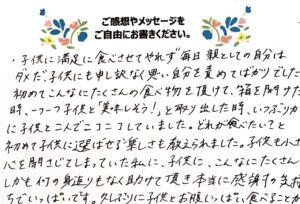 ご感想やメッセージを
ご自由にお書きください。
・子供に満足に食べさせてやれず毎日 親としての自分は
ダメだ、子供にも申し訳なく思い自分を責めてばかりでした
初めてこんなにたくさんの食べ物を頂けて、箱を開けた
時、一つ一つ子供と「美味しそう！」と取り出した時、いつぶりか
に子供と二人でニコニコしていました。どれが食べたい？と
初めて子供に選ばせる楽しさも教えられました。子供も小さ
心を閉ざしてしまっていた私に、子供に、こんなにたくさん
しかも何の見返りもなく助けて頂き本当に感謝の気持
ちでいっぱいです。久しぶりに子供とお腹いっぱい食べること